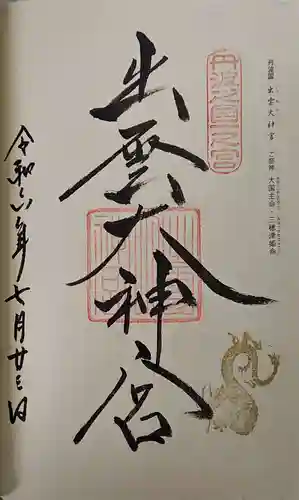 丹波國 出雲大神宮 ご祭神 大国主命・三穂津姫命
丹波國一之宮
出雲大神宮
令和六年七月廿三日